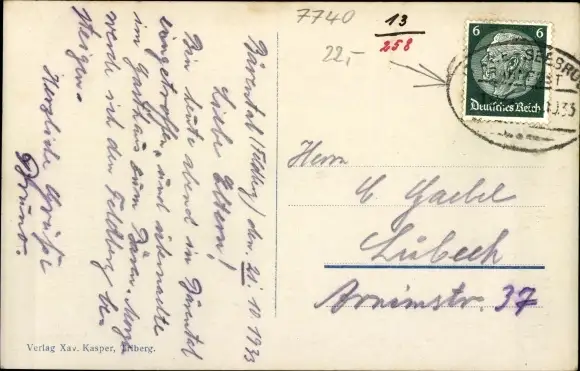 7740
13
258
22,-
6 6
Deutsches Reich
SEEBRU
33
Bärental (Feldbg) den 21 10 1933
Liebe Eltern!
Bin heute abend in Bärental
eingetroffen, und übernachte
im Gasthaus zum Bären. Morgen
werde ich den Feldberg be-
steigen.
Herzliche Grüße
Bruno.
Herrn
C Gaebel
Lübeck
Arnimstr. 37
Verlag Xav. Kasper, Triberg.